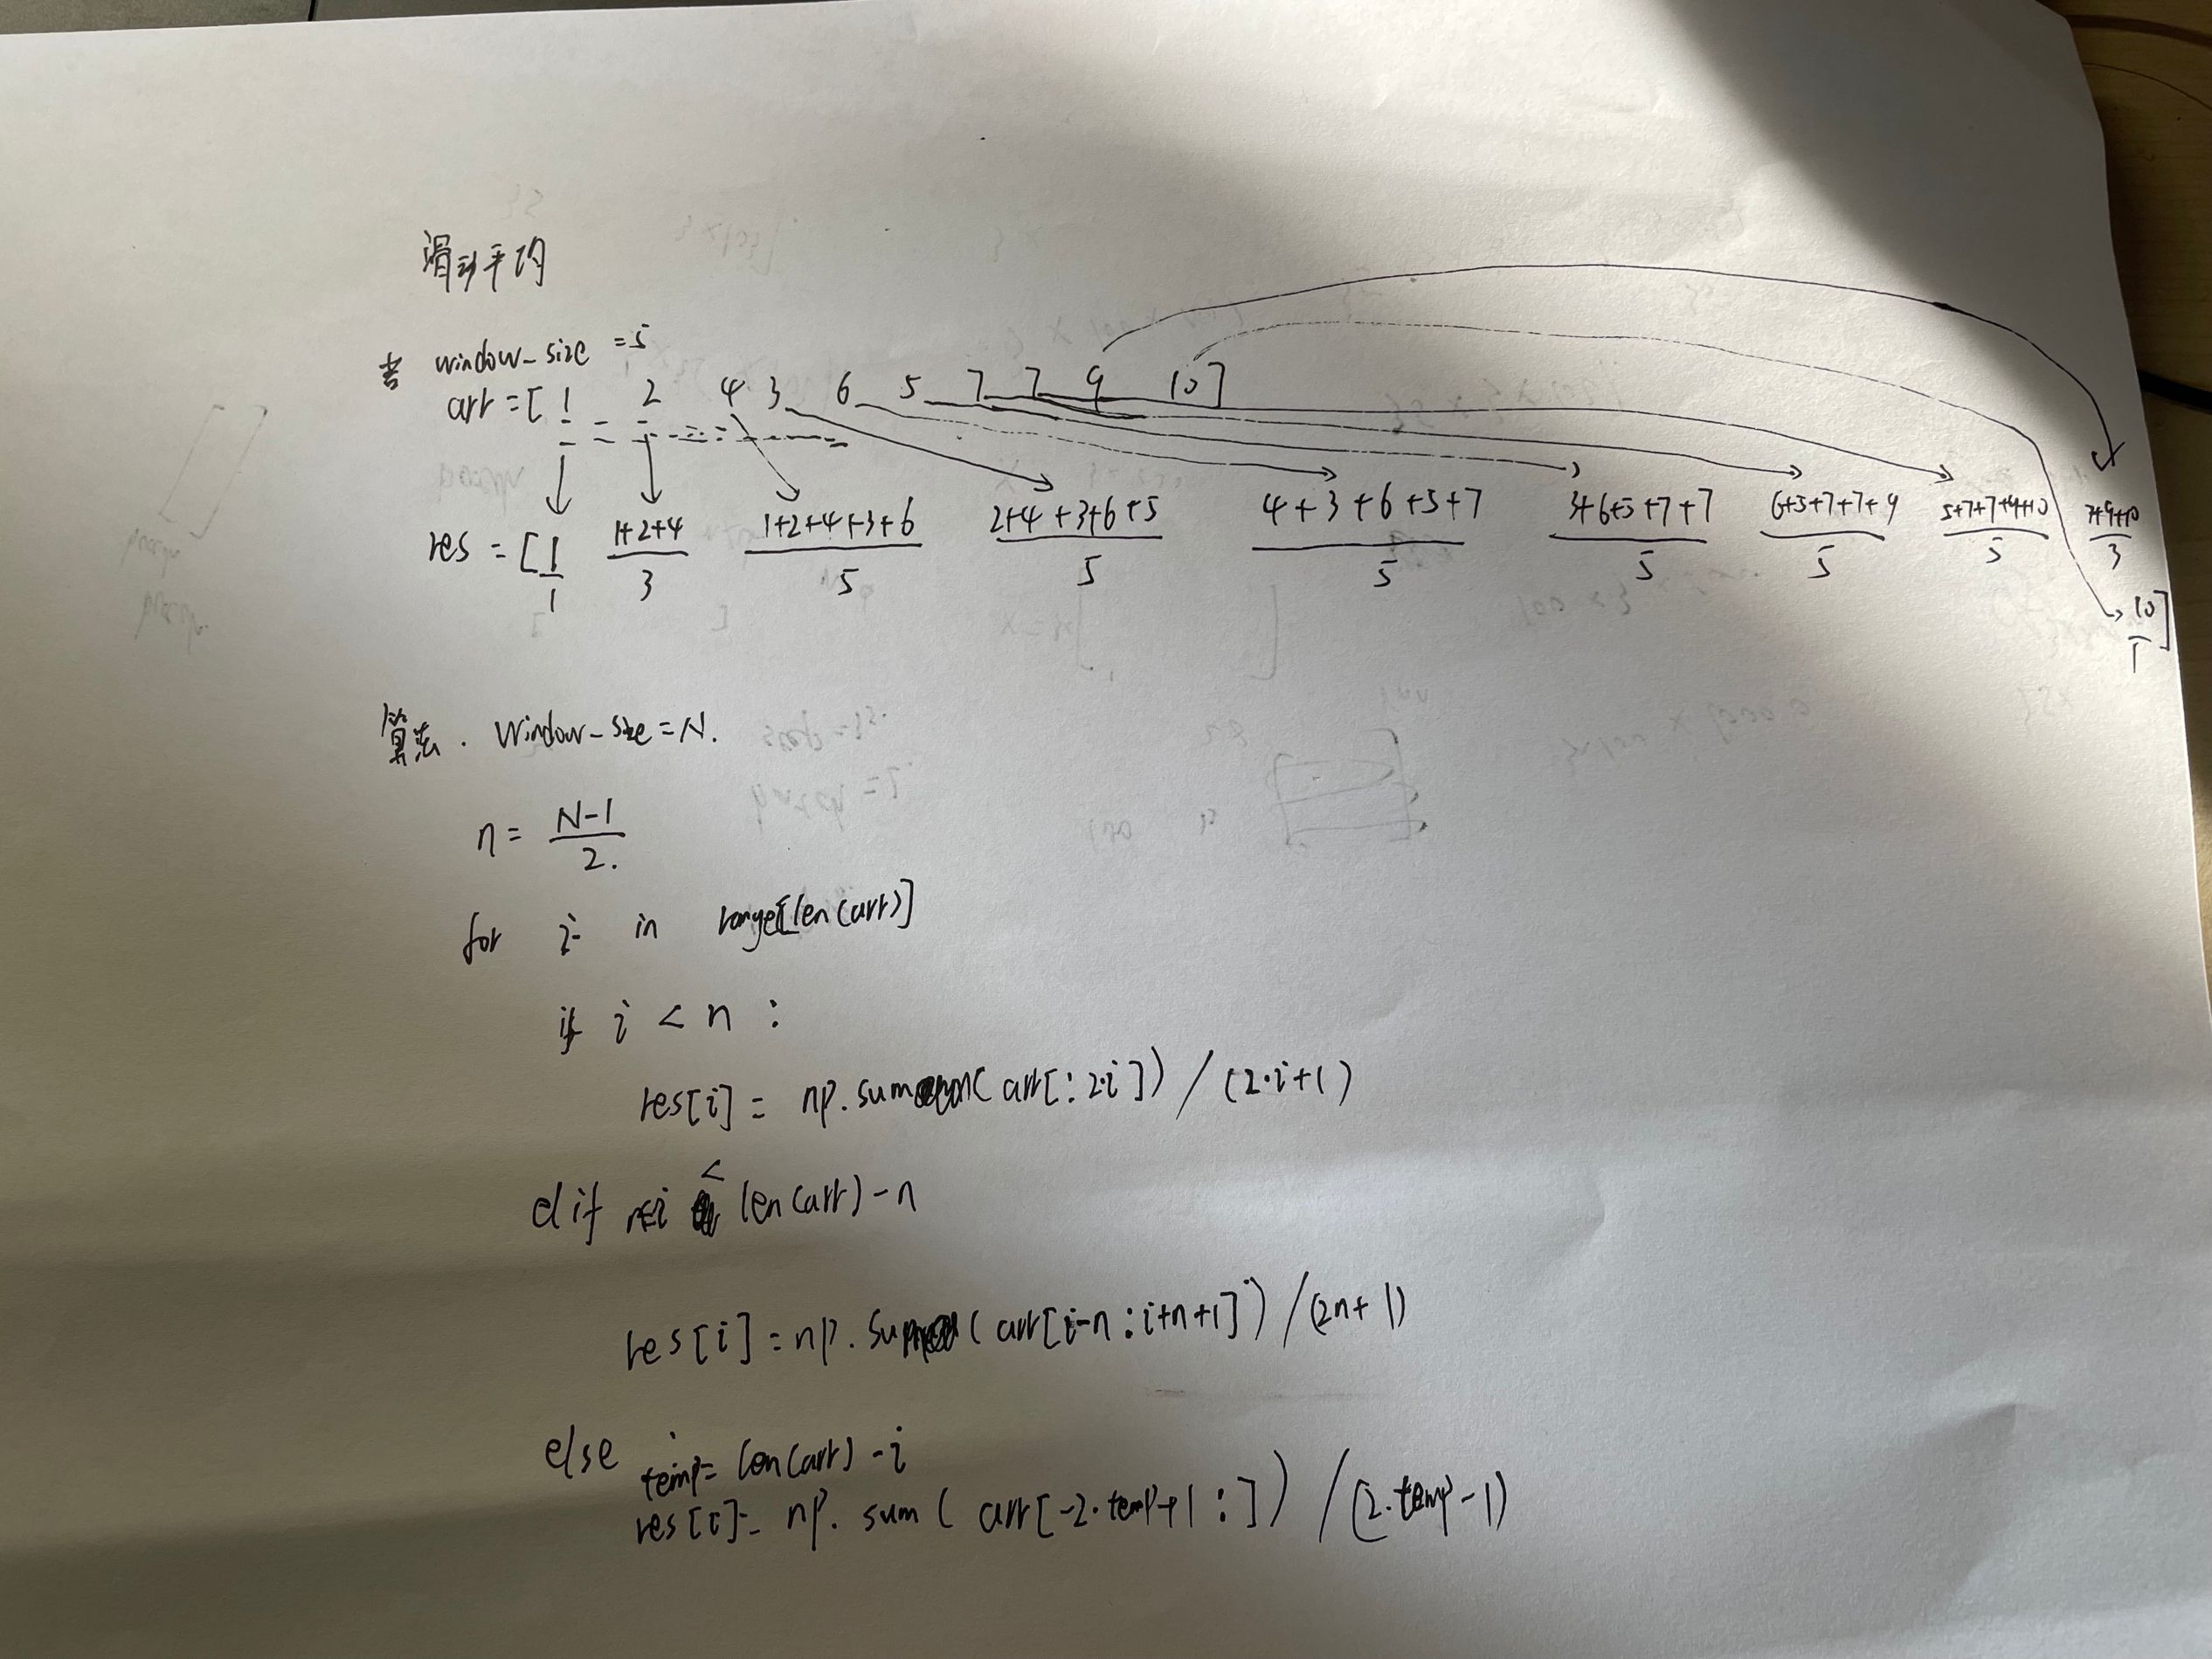 滑动平均
若 window-size = 5
arr = [ 1 2 4 3 6 5 7 7 9 10 ]
res = [ 1/1 (1+2+4)/3 (1+2+4+3+6)/5 (2+4+3+6+5)/5 (4+3+6+5+7)/5 (3+6+5+7+7)/5 (6+5+7+7+9)/5 (5+7+7+9+10)/5 (7+9+10)/3 10/1 ]
算法. Window-size = N.
n = (N-1)/2.
for i in range[len(arr)]
if i < n :
res[i] = np.sum(arr[:2·i])/(2·i+1)
elif n≤i < len(arr)-n
res[i] = np.sum(arr[i-n:i+n+1])/(2n+1)
else temp = len(arr)-i
res[i] = np.sum(arr[-2·temp+1:])/(2·temp-1)